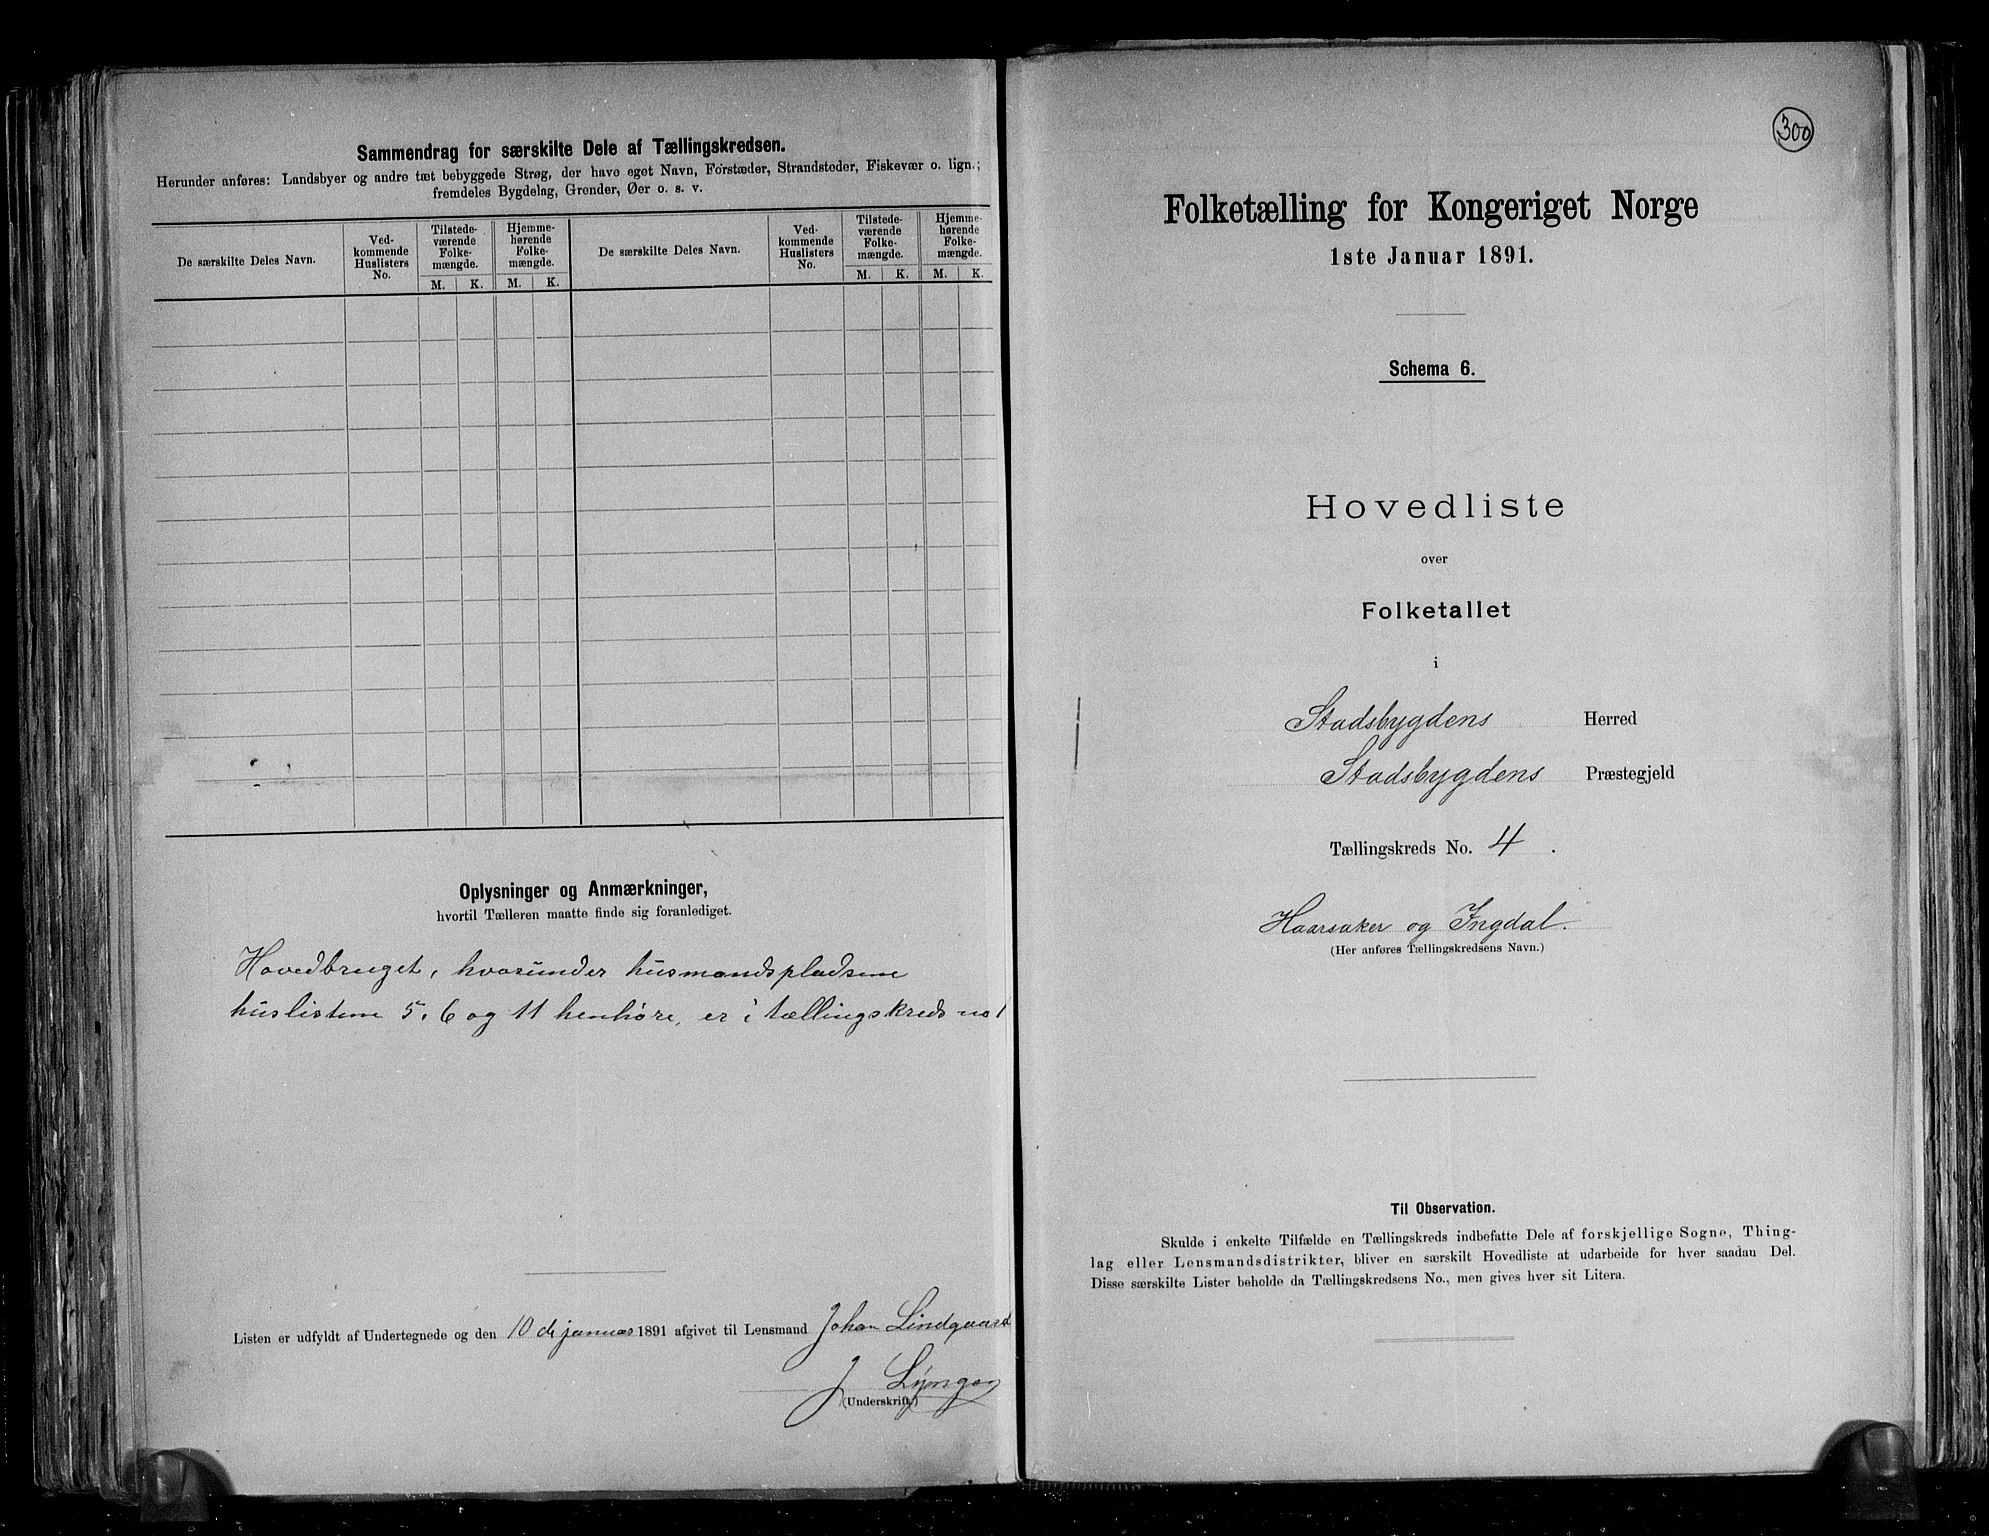 Sammendrag for særskilte Dele af Tællingskredsen.
Herunder anføres: Landsbyer og andre tæt bebyggede Strøg, der have eget Navn, Forstæder, Strandsteder, Fiskevær o. lign.;
fremdeles Bygdelag, Grender, Øer o. s. v.
De særskilte Deles Navn.
Ved-
kommende
Huslisters
No.
Tilstede-
værende
Folke-
mængde.
Hjemme-
hørende
Folke-
mængde.
M. K. M. K.
De særskilte Deles Navn.
Ved-
kommende
Huslisters
No.
Tilstede-
værende
Folke-
mængde.
Hjemme-
hørende
Folke-
mængde.
M. K. M. K.
Oplysninger og Anmærkninger,
hvortil Tælleren maatte finde sig foranlediget.
Hovedbruget, hvorunder husmandspladsene
huslisterne 5, 6 og 11 henhøre, er i tællingskreds no 1
Listen er udfyldt af Undertegnede og den 10 de januar 1891 afgivet til Lensmand Johan Lindgaard
J
(Underskrift)
300
Folketælling for Kongeriget Norge
1ste Januar 1891.
Schema 6.
Hovedliste
over
Folketallet
i
Stadsbygdens Herred
Stadsbygdens Præstegjeld
Tællingskreds No. 4.
Haarsaker og Ingdal.
(Her anføres Tællingskredsens Navn.)
Til Observation.
Skulde i enkelte Tilfælde en Tællingskreds indbefatte Dele af forskjellige Sogne, Thing-
lag eller Lensmandsdistrikter, bliver en særskilt Hovedliste at udarbeide for hver saadan Del.
Disse særskilte Lister beholde da Tællingskredsens No., men gives hver sit Litera.